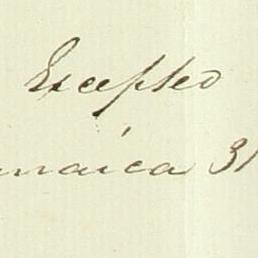 Excepted
maica 31